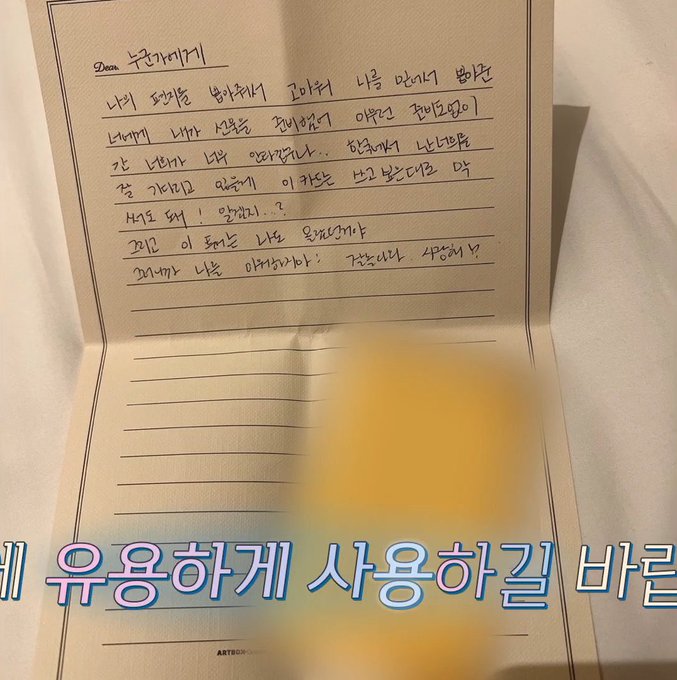 Dear. 누군가에게
나의 편지를 뽑아줘서 고마워 나를 믿어서 뽑아준
너에게 내가 선물을 준비했어 아무런 준비도없이
간 너희가 너무 안타깝구나.. 한국에서 난 너희를
잘 기다리고 있을게 이 카드는 쓰고 싶은대로 막
써도 돼! 알겠지..?
그리고 이 나도
그러니까 나를 미워하지마! 잘놀다와 사랑해
유용하게 사용하길 바랍
ARTBOX